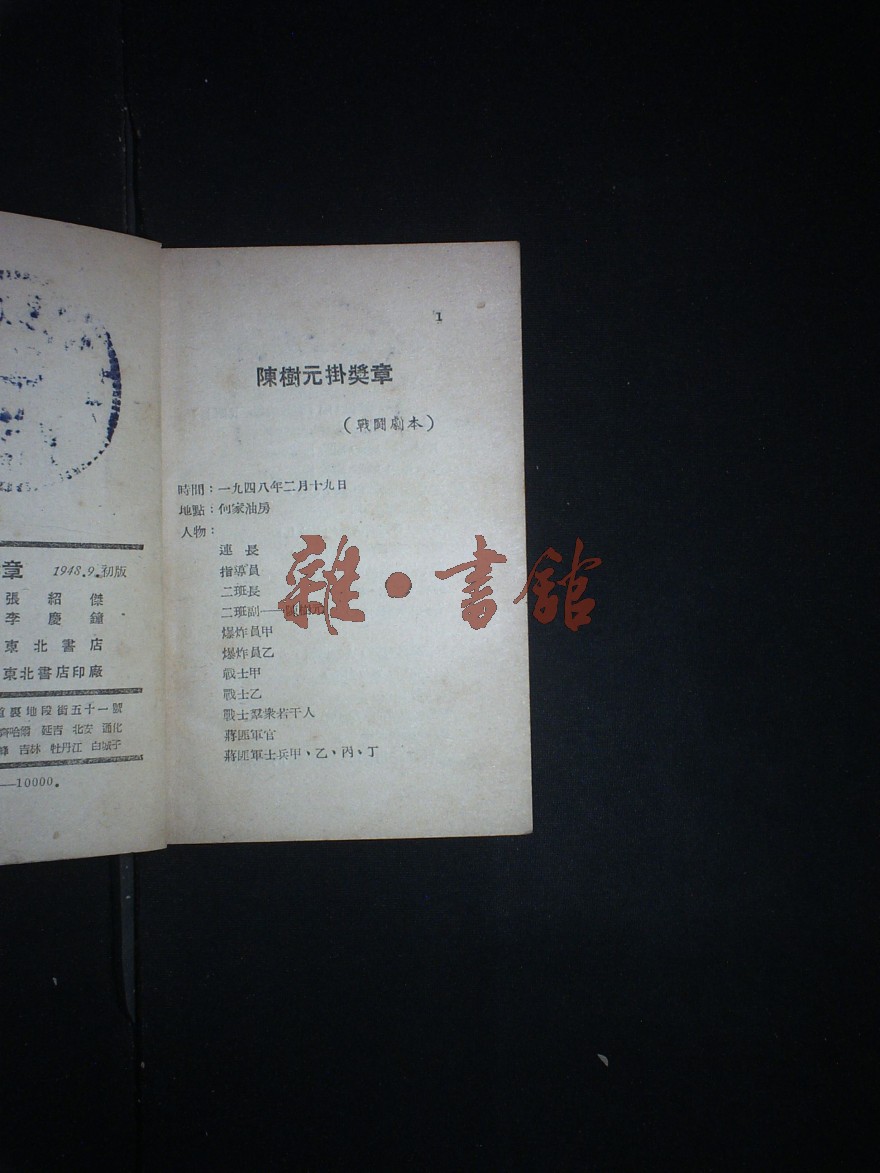 章 1948.9.初版
張紹傑
李慶鐘
東北書店
東北書店印廠
道裏地段街五十一號
齊哈爾 延吉 北安 通化
吉林 牡丹江 白城子
—10000.
1
陳樹元掛奬章
(戰鬪劇本)
時間:一九四八年二月十九日
地點:何家油房
人物:
連長
指導員
二班長
二班副——
爆炸員甲
爆炸員乙
戰士甲
戰士乙
戰士羣衆若干人
蔣匪軍官
蔣匪軍士兵甲、乙、丙、丁
雜·書館